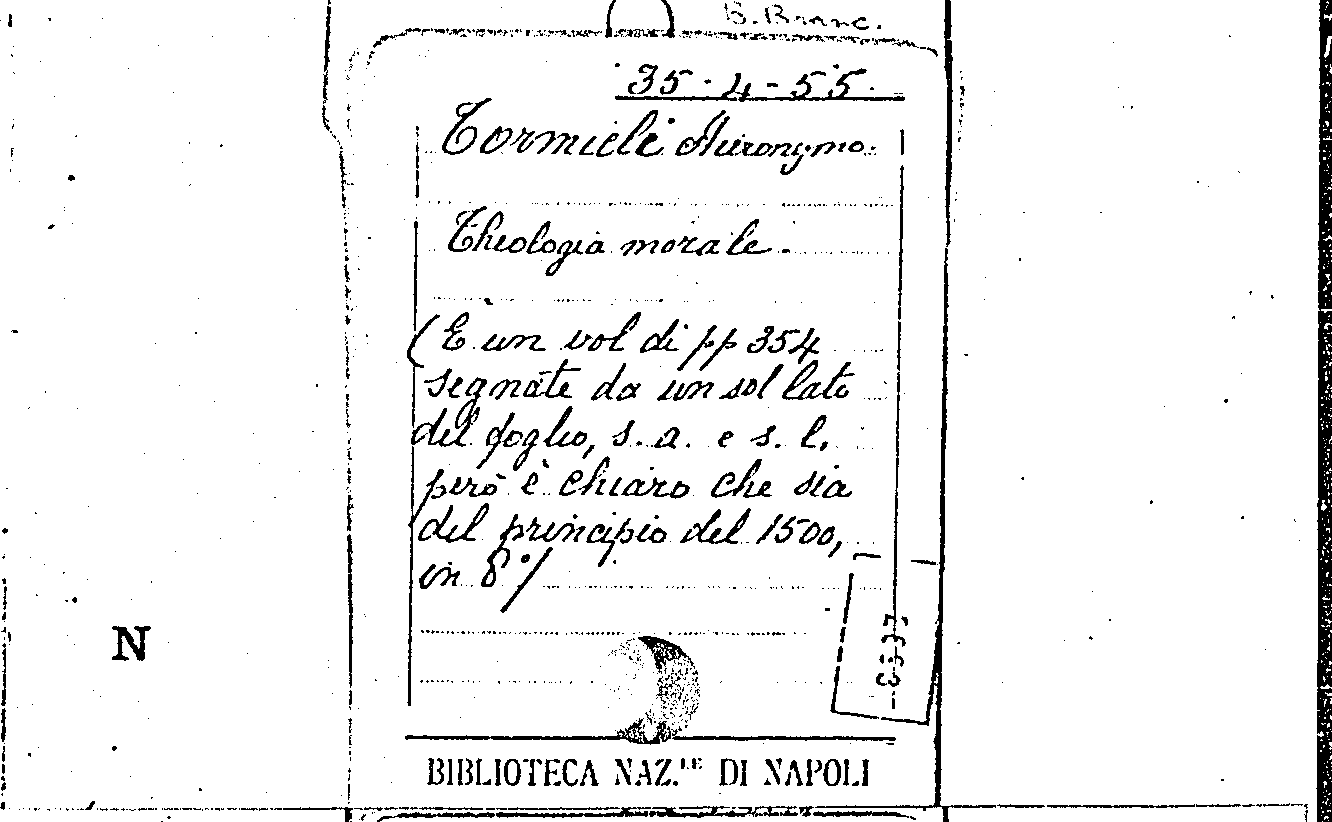 B. Branc.
35-4-55.
Tormieli Hieronymo.
Theologia morale.
(È un vol di pp 354
segnate da un sol lato
del foglio, s. a. e s. l.
però è chiaro che sia
del principio del 1500,
in 8°/
N
BIBLIOTECA NAZ.LE DI NAPOLI